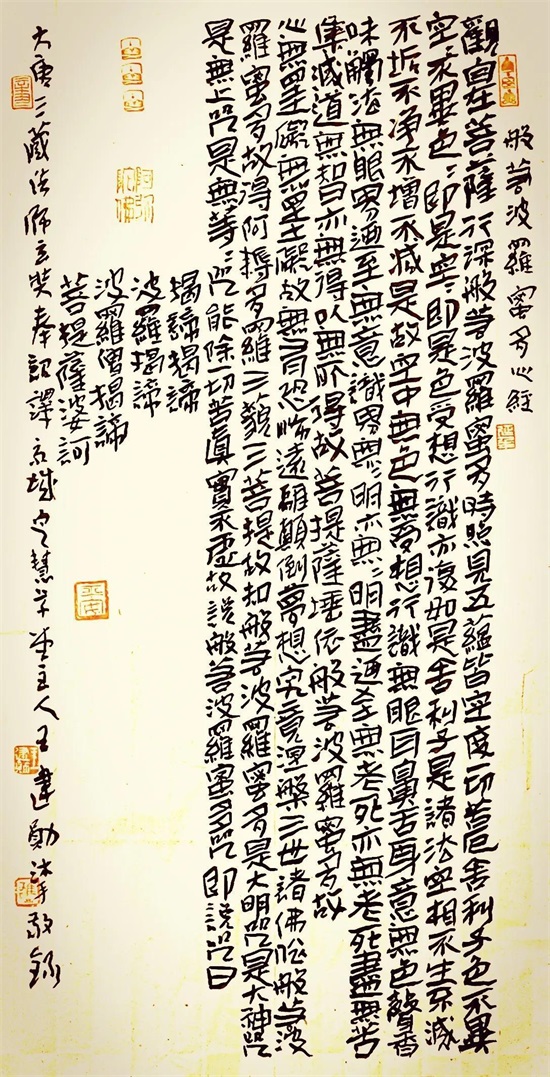 般若波羅蜜多心經
觀自在菩薩行深般若波羅蜜多時照見五蘊皆空度一切苦厄舍利子色不異
空々不異色々即是空々即是色受想行識亦復如是舍利子是諸法空相不生不滅
不垢不淨不增不減是故空中無色無受想行識無眼耳鼻舌身意無色聲香
味觸法無眼界迺至無意識界無々明亦無々明盡迺至無老死亦無老死盡無苦
集滅道無智亦無得以無所得故菩提薩埵依般若波羅蜜多故
心無罣礙無罣礙故無有恐怖遠離顛倒夢想究竟涅槃三世諸佛依般若波
羅蜜多故得阿耨多羅三藐三菩提故知般若波羅蜜多是大明咒是大神咒
是無上咒是無等々咒能除一切苦真實不虛故說般若波羅蜜多咒即說咒曰
揭諦揭諦
波羅揭諦
波羅僧揭諦
菩提薩婆訶
阿弥陀佛
平安
大唐三藏法師玄奘奉詔譯 京城定慧草堂主人王建勛沐手敬錄